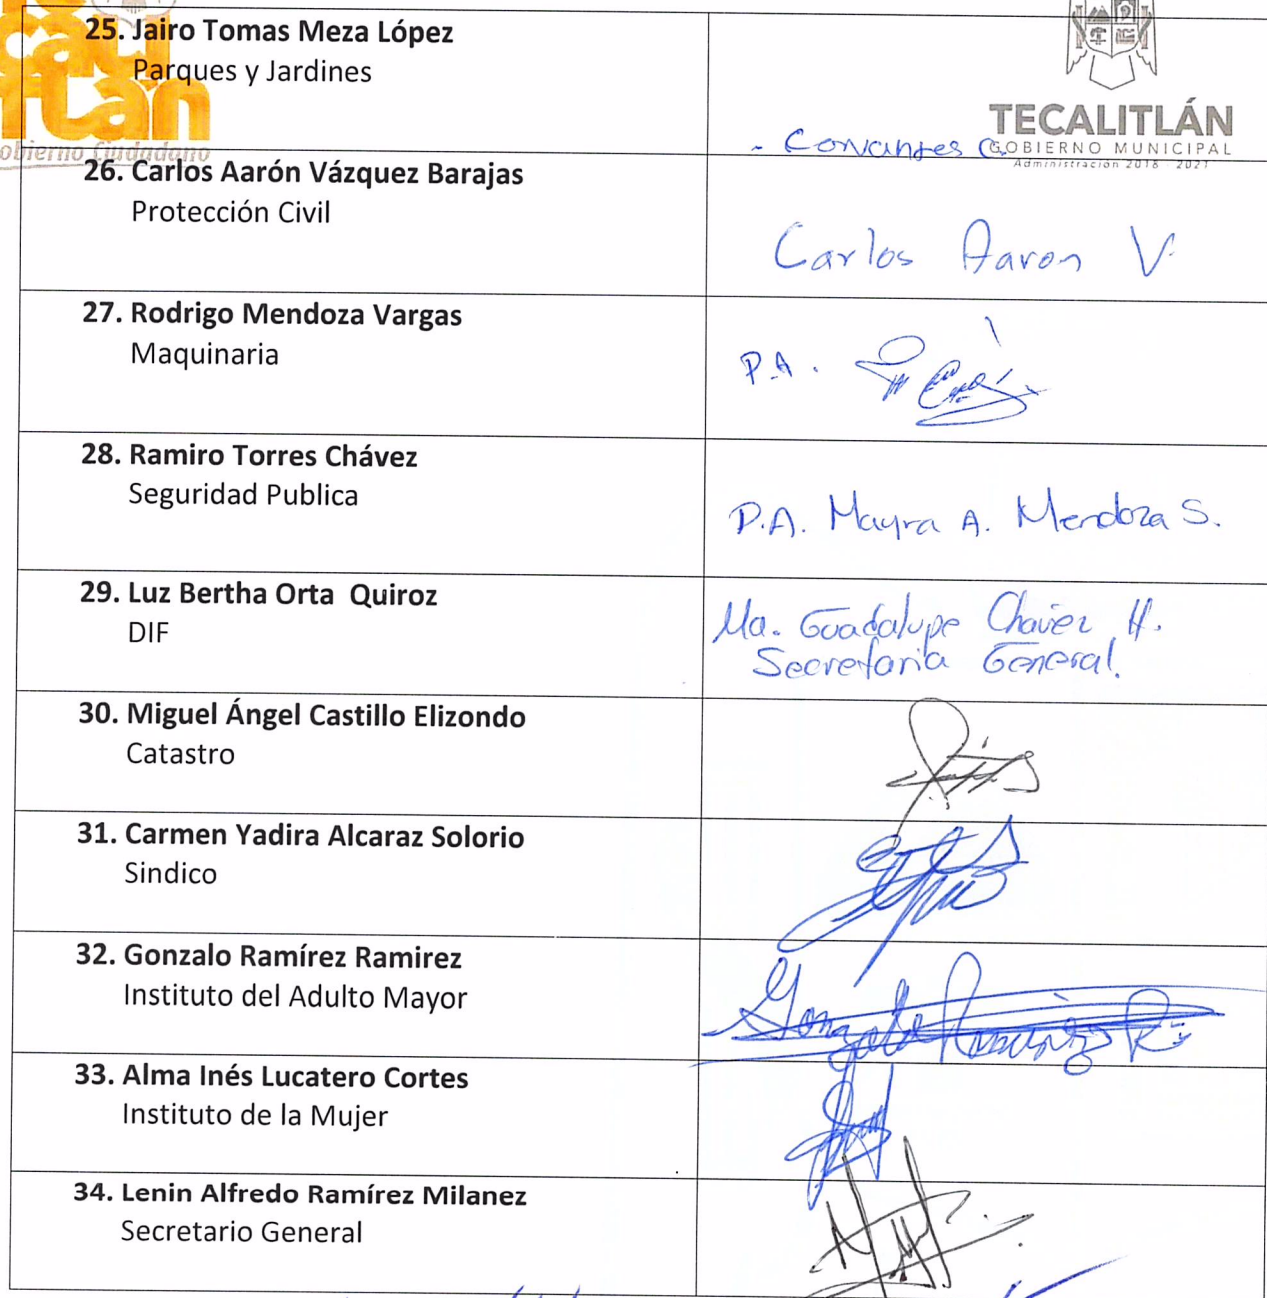 25. Jairo Tomas Meza López
Parques y Jardines
TECALITLÁN
GOBIERNO MUNICIPAL
Administración 2018 2021
Gobierno Ciudadano
- Cervantes C.
26. Carlos Aarón Vázquez Barajas
Protección Civil
Carlos Aaron V.
27. Rodrigo Mendoza Vargas
Maquinaria
P.A.
28. Ramiro Torres Chávez
Seguridad Publica
P.A. Mayra A. Mendoza S.
29. Luz Bertha Orta Quiroz
DIF
Ma. Guadalupe Chavez H.
Secretaria General.
30. Miguel Ángel Castillo Elizondo
Catastro
31. Carmen Yadira Alcaraz Solorio
Sindico
32. Gonzalo Ramírez Ramirez
Instituto del Adulto Mayor
Gonzalo Ramirez R.
33. Alma Inés Lucatero Cortes
Instituto de la Mujer
34. Lenin Alfredo Ramírez Milanez
Secretario General